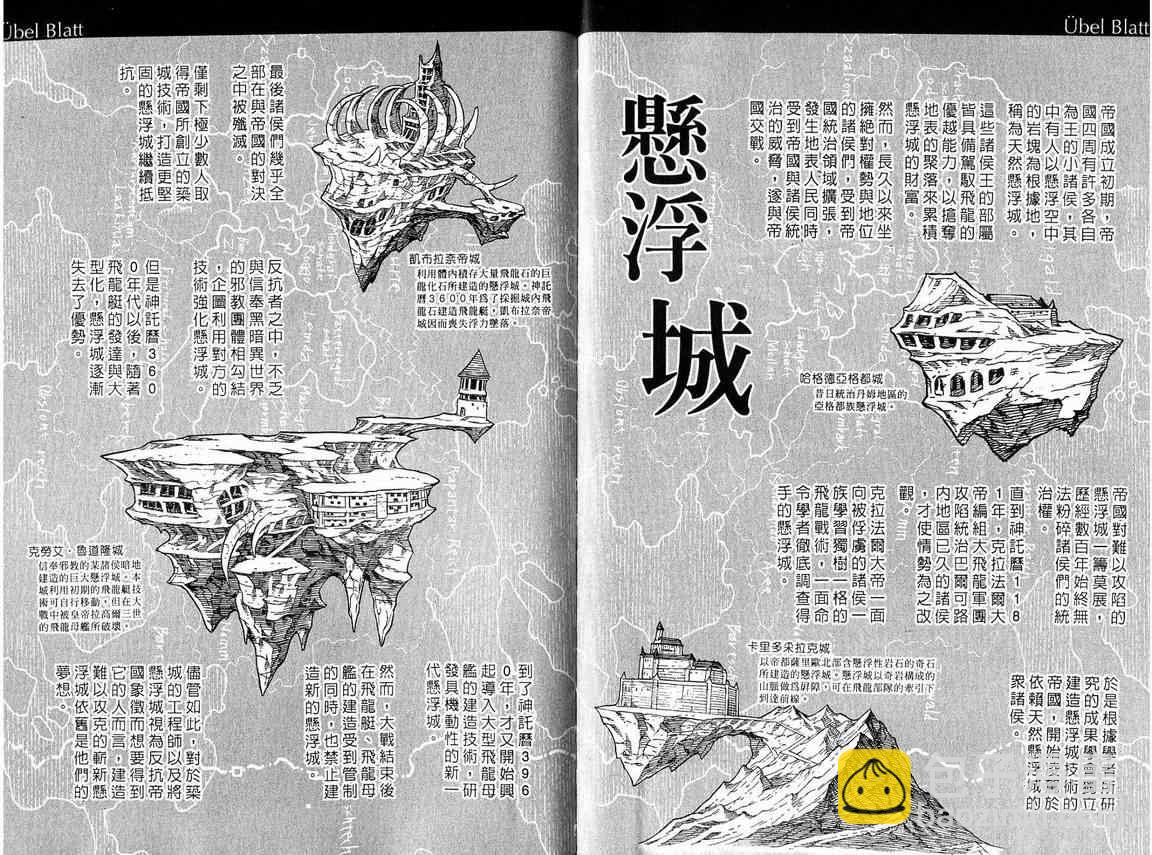 Übel Blatt
Übel Blatt
懸浮城
帝國成立初期，帝
國四周有許多各自
為王的小諸侯，其
中有人以懸浮空中
的岩塊為根據地，
稱為天然懸浮城。
這些諸侯王的部屬
皆具備駕馭飛龍的
優越能力，以搶奪
地表的聚落來累積
懸浮城的財富。
然而，長久以來坐
擁絕對權勢與地位
的諸侯們，受到帝
國統治領域擴張，
發生地表人民同時
受到帝國與諸侯統
治的威脅，遂與帝
國交戰。
哈格德亞格都城
昔日統治丹姆地區的
亞格都族懸浮城。
帝國對難以攻陷的
懸浮城一籌莫展，
歷經數百年始終無
法粉碎諸侯們的統
治權。
直到神託曆118
1年，克拉法爾大
帝編組大飛龍軍團
攻陷統治巴爾可路
內地區已久的諸侯
，才使情勢為之改
觀。
克拉法爾大帝一面
向被俘虜的諸侯一
族學習獨樹一格的
飛龍戰術，一面命
令學者徹底調查得
手的懸浮城。
卡里多采拉克城
以帝都薩里歐北部含懸浮性岩石的奇石
所建造的懸浮城。懸浮城以奇岩構成的
山脈做為屏障，可在飛龍部隊的牽引下
到達前線。
於是根據學者所研
究的成果，
建造懸浮城技術的
帝國，開始
依賴天然懸浮城的
眾諸侯。
最後諸侯們幾乎全
部在與帝國的對決
之中被殲滅。
僅剩下極少數人取
得帝國所創立的築
城技術，打造更堅
固的懸浮城繼續抵
抗。
凱布拉奈帝城
利用體內積存大量飛龍石的巨
龍化石所建造的懸浮城。神託
曆3600年為了採掘城內飛
龍石建造飛龍艇，凱布拉奈帝
城因而喪失浮力墜落。
反抗者之中，不乏
與信奉黑暗異世界
的邪教團體相勾結
，企圖利用對方的
技術強化懸浮城。
但是神託曆360
0年代以後，隨著
飛龍艇的發達與大
型化，懸浮城逐漸
失去了優勢。
克勞艾·魯道隆城
信奉邪教的某諸侯暗地
建造的巨大懸浮城。本
城利用初期的飛龍艇技
術可自行移動，但在大
戰中被皇帝拉高爾三世
的飛龍母艦所破壞。
到了神託曆396
0年，才又開始興
起導入大型飛龍母
艦的建造技術，研
發具機動性的新一
代懸浮城。
然而，大戰結束後
在飛龍艇、飛龍母
艦的建造受到管制
的同時，也禁止建
造新的懸浮城。
儘管如此，對於築
城的工程師以及將
懸浮城視為反抗帝
國象徵而想要得到
它的人而言，建造
難以攻克的嶄新懸
浮城依舊是他們的
夢想。